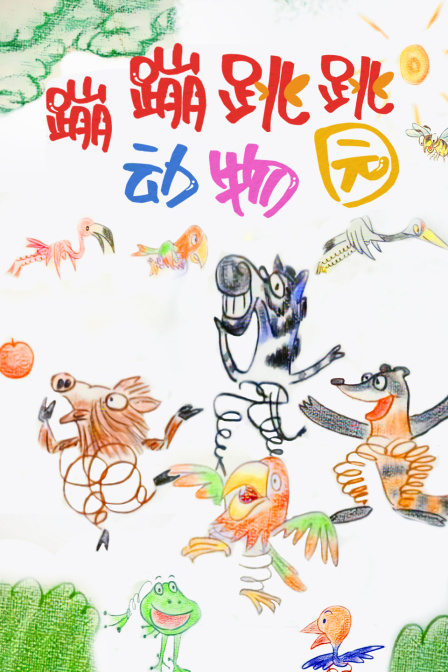 蹦蹦跳跳
动物园